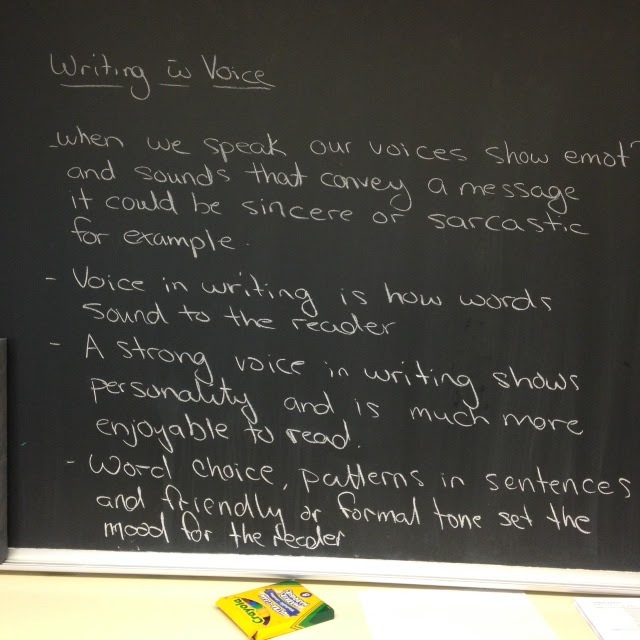 Writing w̄ Voice
- when we speak our voices show emot'
and sounds that convey a message
it could be sincere or sarcastic
for example.
- Voice in writing is how words
sound to the reader
- A strong voice in writing shows
personality and is much more
enjoyable to read.
- Word choice, patterns in sentences
and friendly or formal tone set the
mood for the reader
Crayola